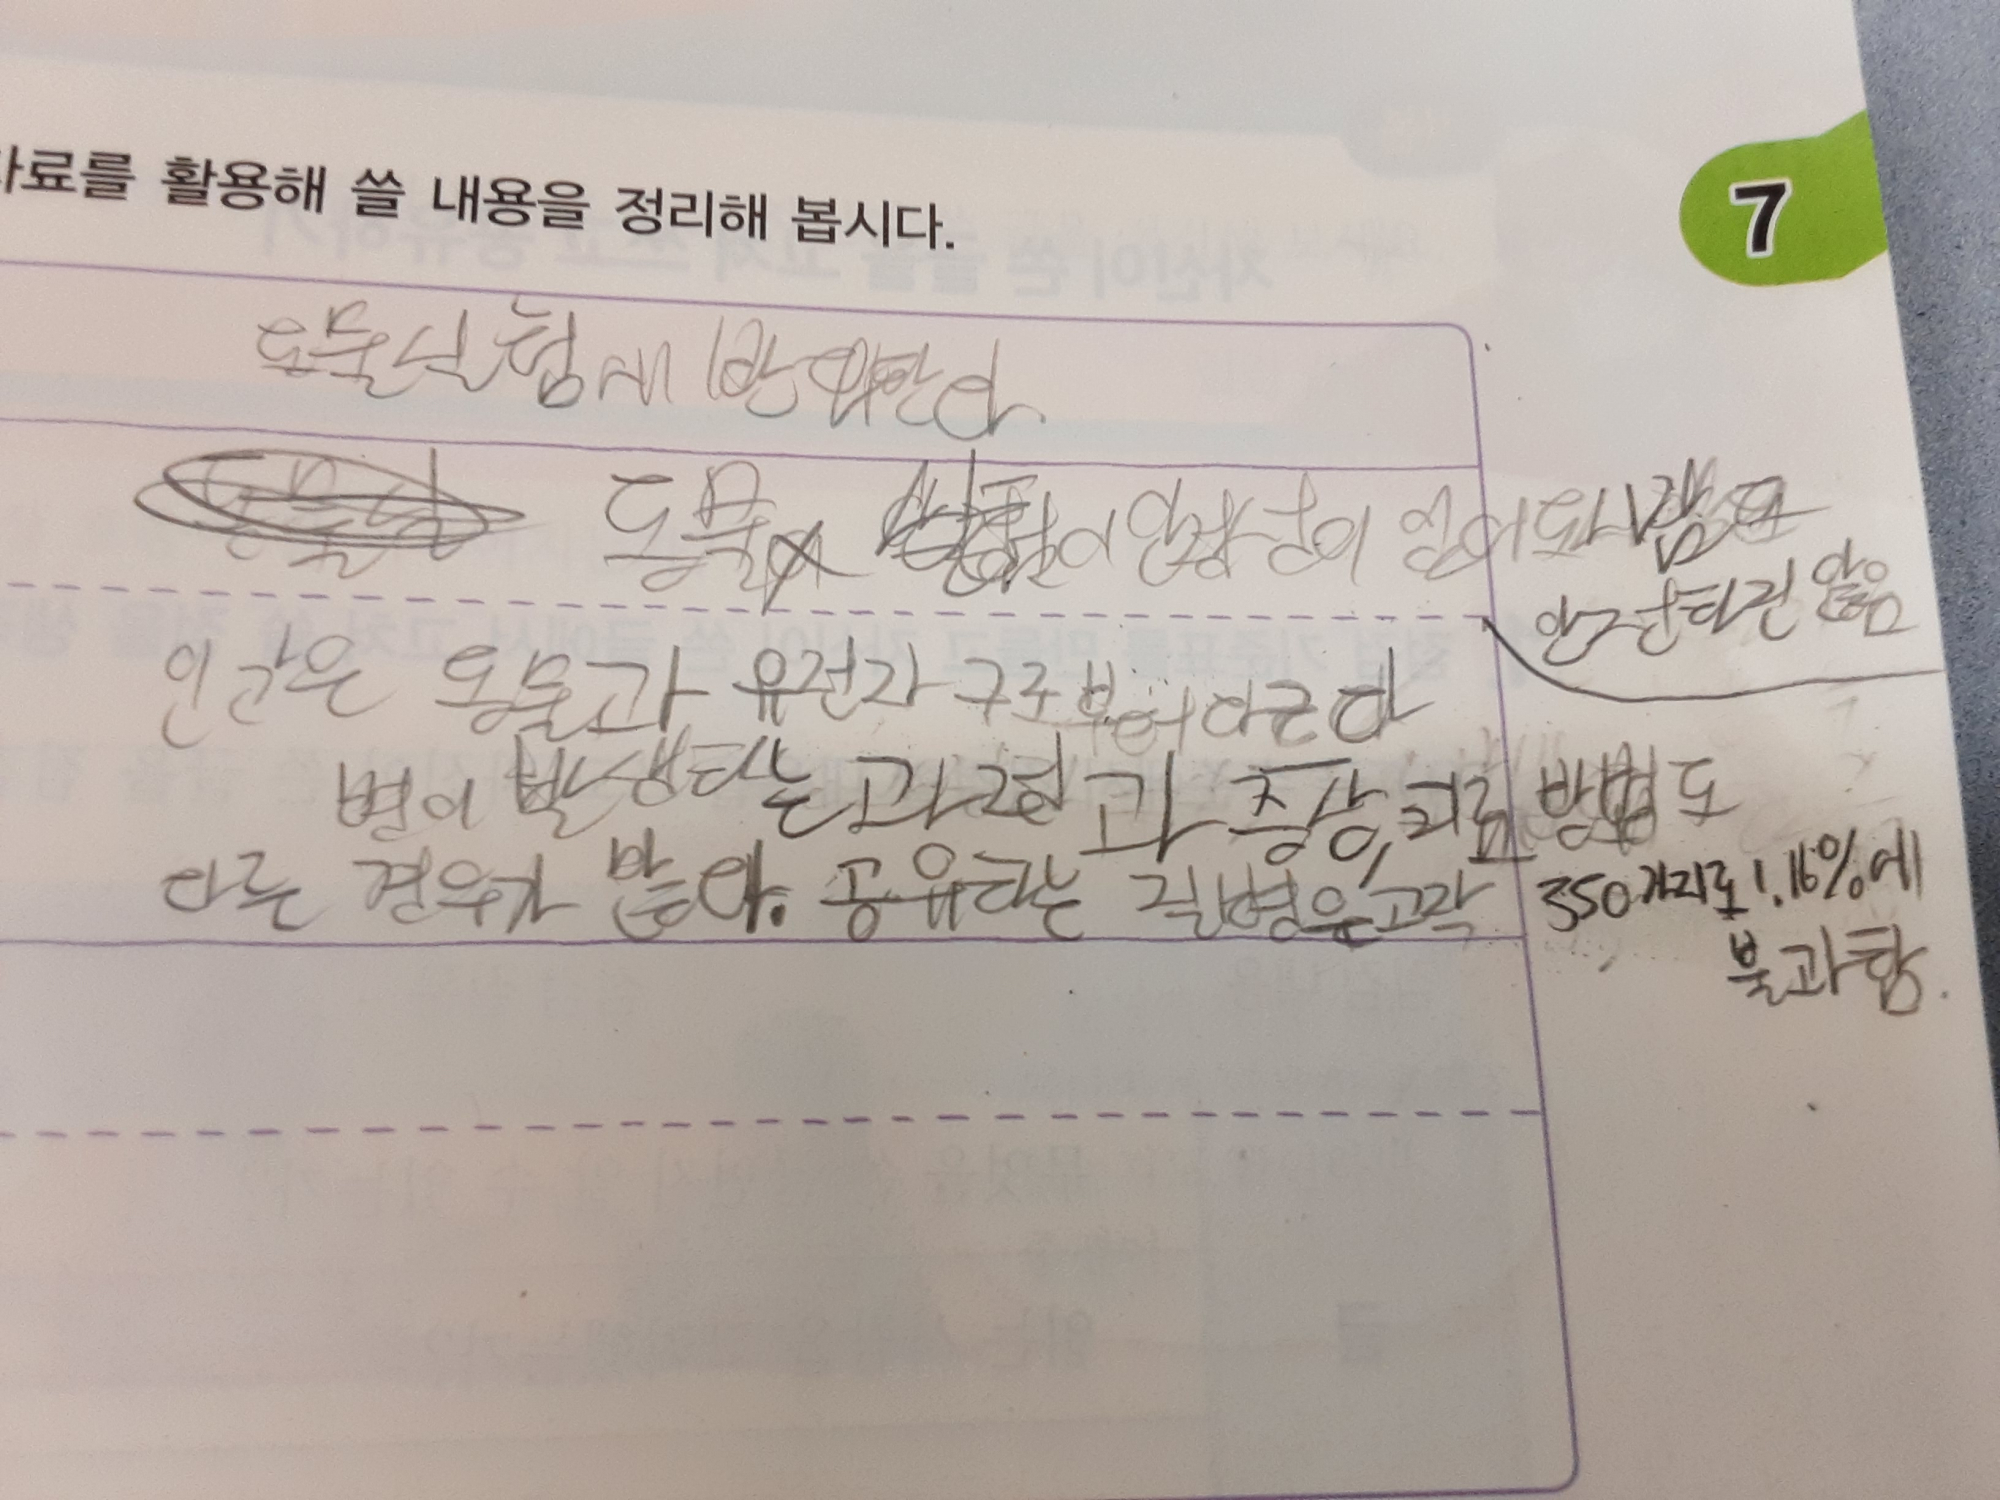 자료를 활용해 쓸 내용을 정리해 봅시다.
7
동물실험에 반대한다
동물 이상이 없어도 사람도
안전하진 않음
인간은 동물과 유전자 구조부터 다르다
병이 발생하는 과정과 증상, 치료 방법도
다른 경우가 많다. 공유하는 질병은 고작 350가지로 1.16%에
불과함.